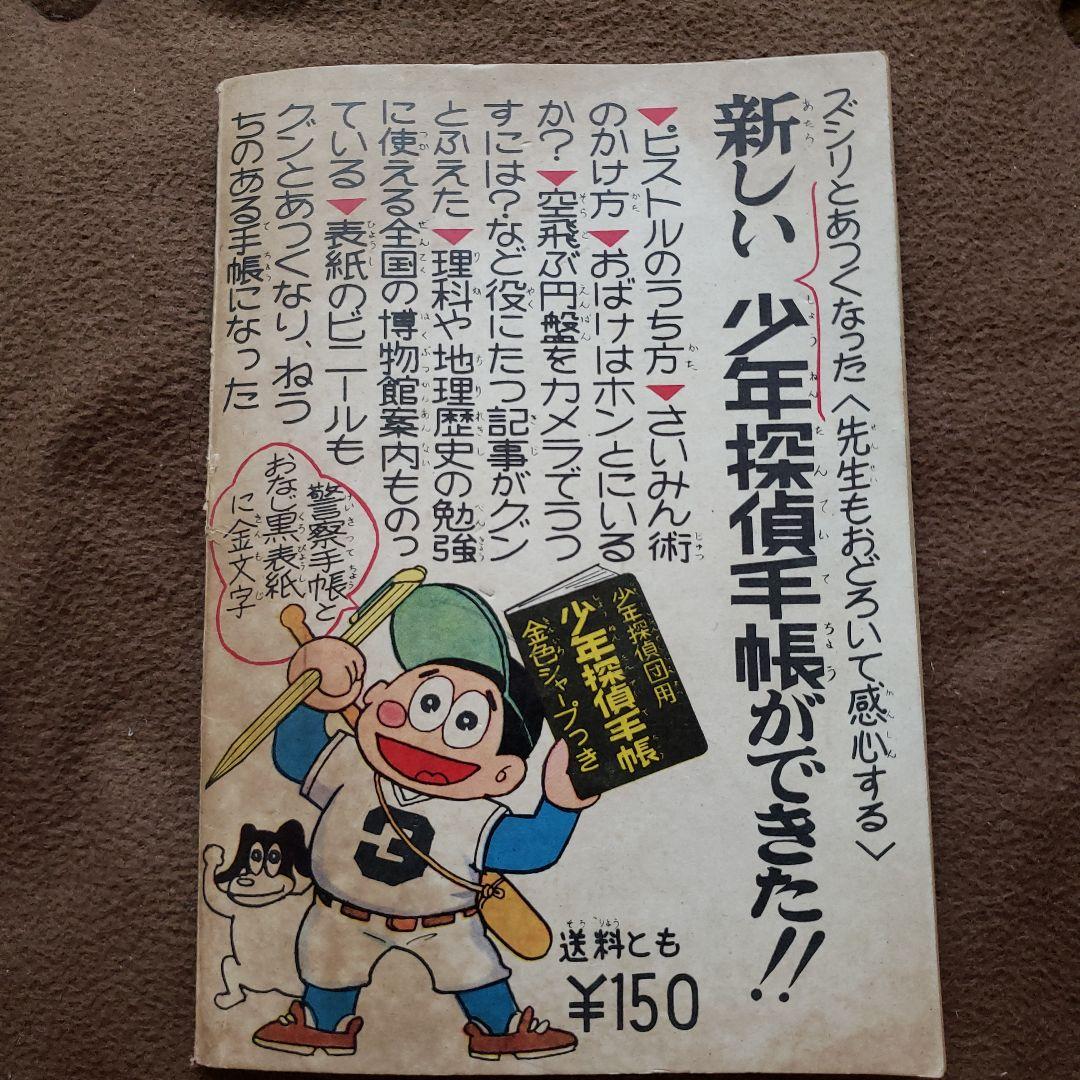 ズシリとあつくなった〈先生もおどろいて、感心する〉
新しい少年探偵手帳ができた!!
▼ピストルのうち方▼さいみん術
のかけ方▼おばけはホンとにいる
か?▼空飛ぶ円盤をカメラでうつ
すには?など役にたつ記事がグン
とふえた▼理科や地理歴史の勉強
に使える全国の博物館案内ものっ
ている▼表紙のビニールも
グンとあつくなり、ねう
ちのある手帳になった
警察手帳と
おなじ黒表紙
に金文字
少年探偵団用
少年探偵手帳
金色シャープつき
3
送料とも
¥150